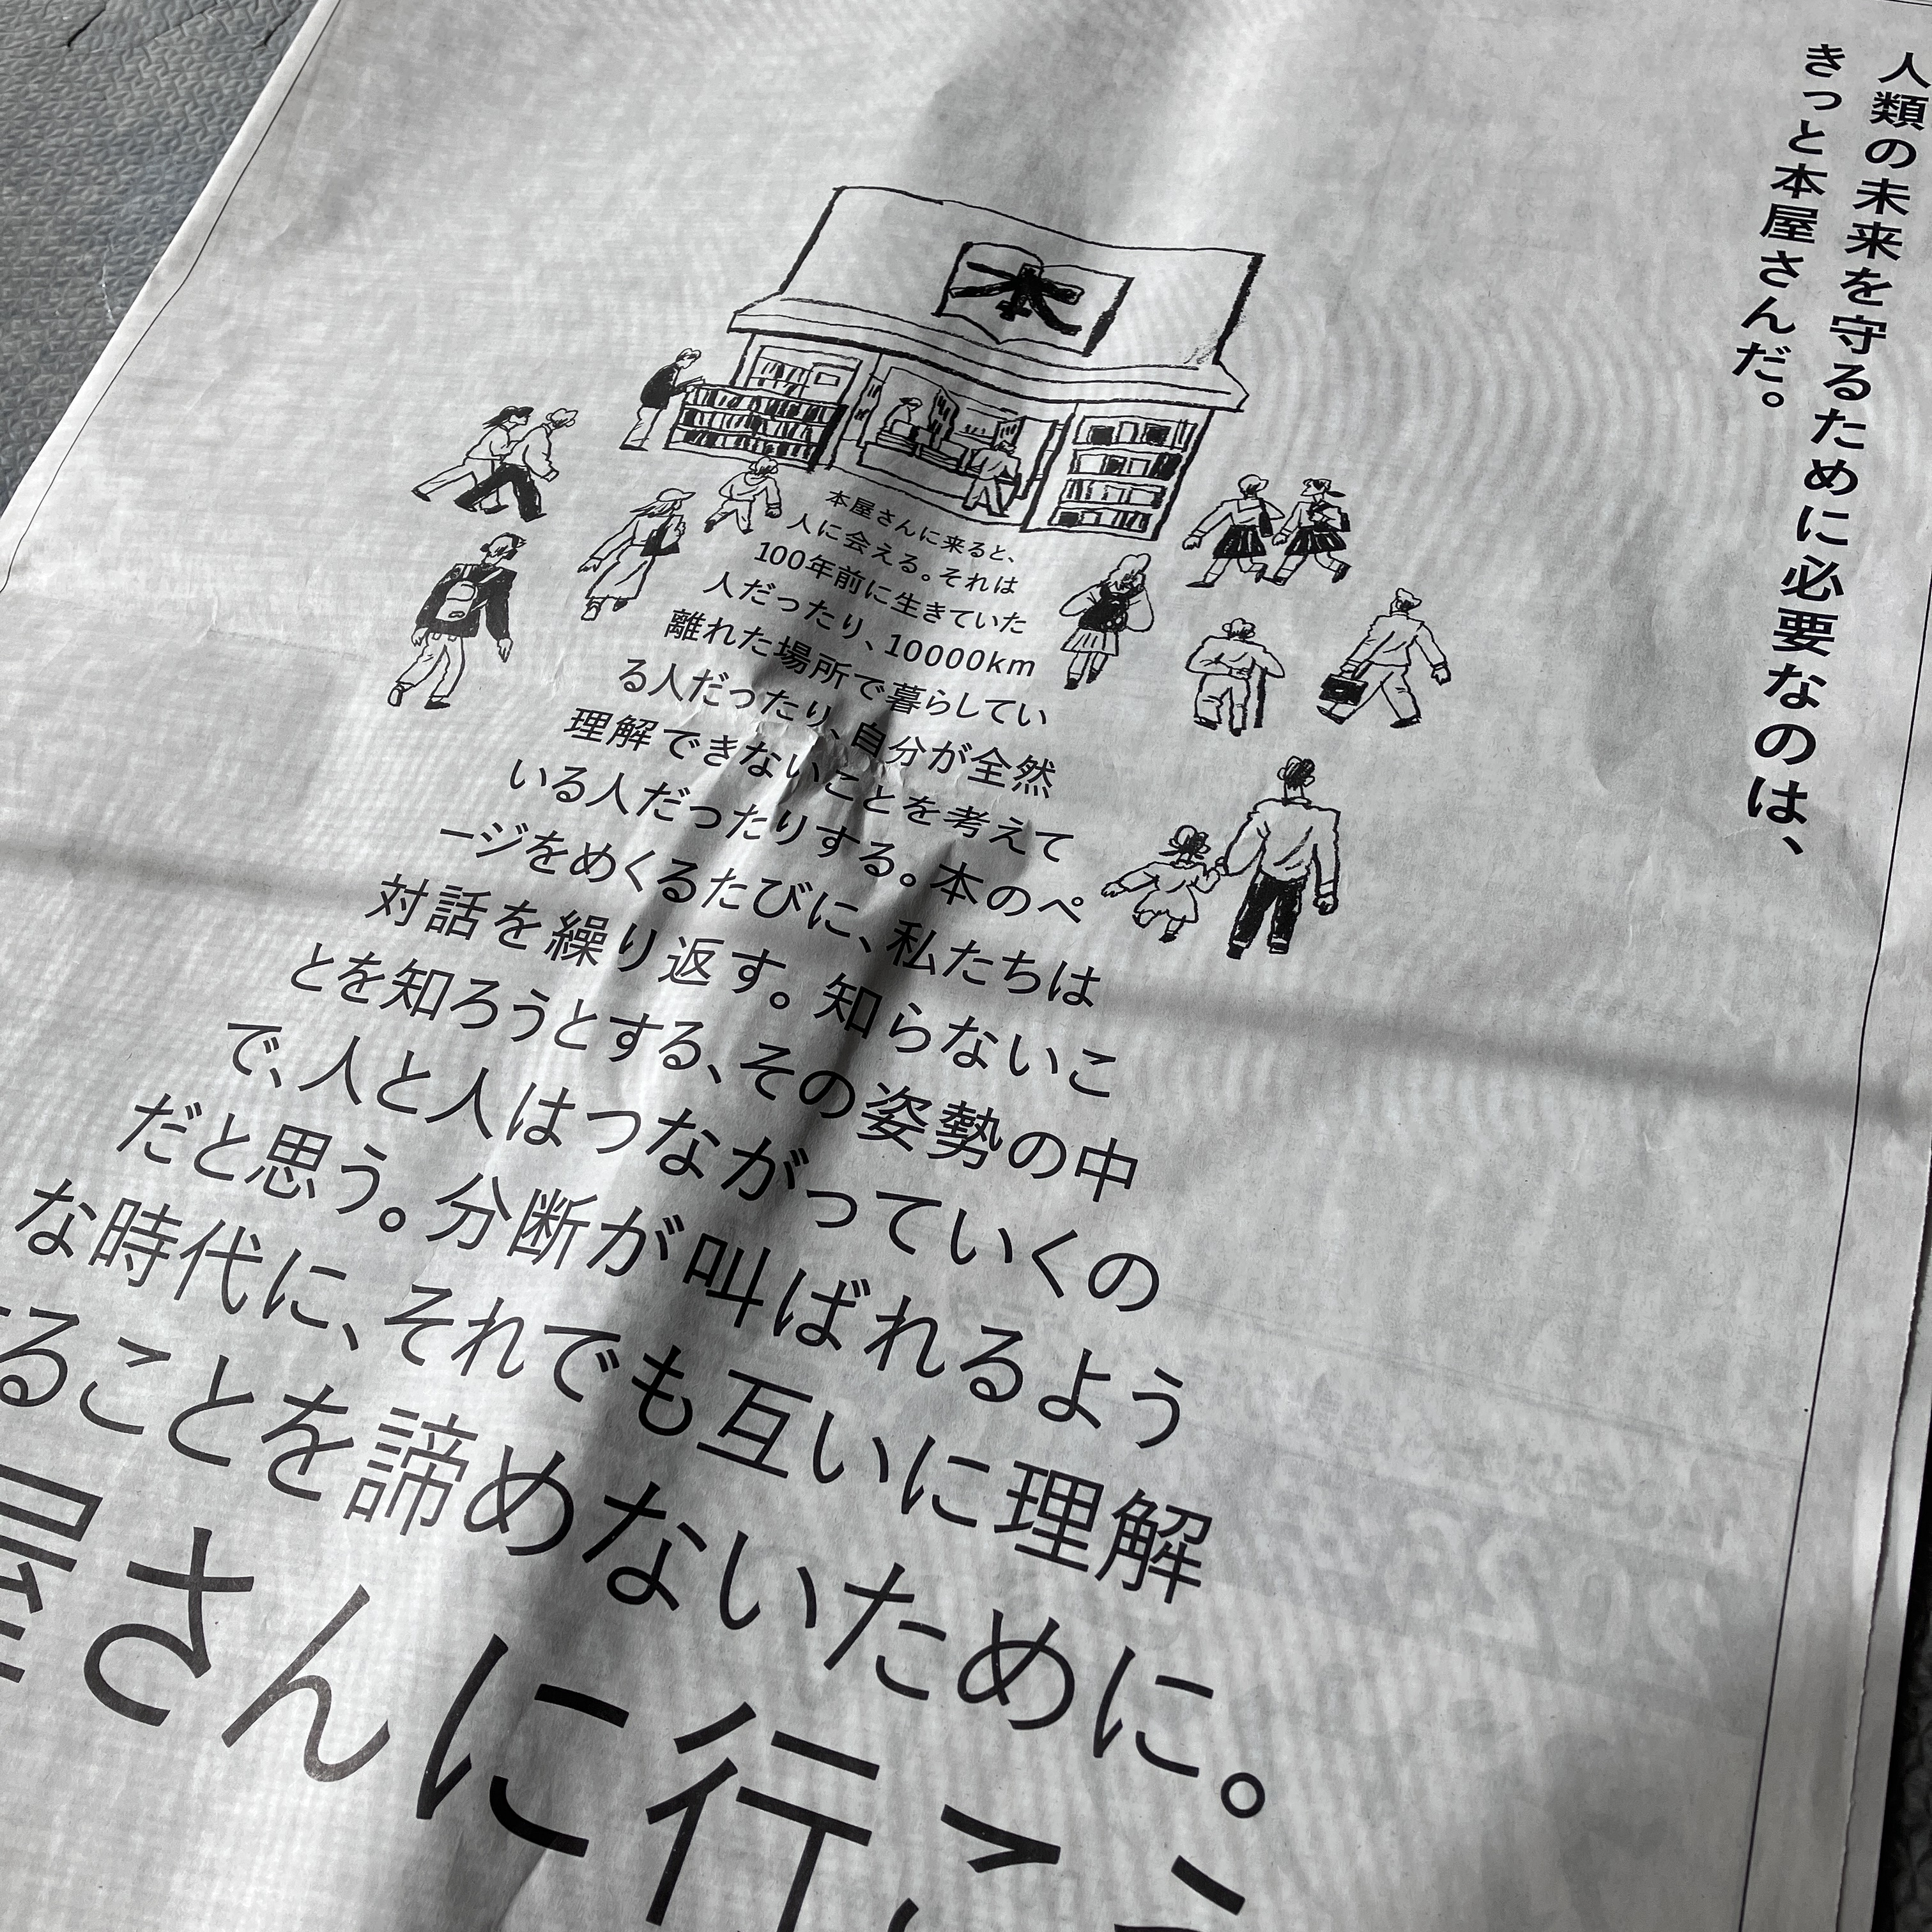 人類の未来を守るために必要なのは、
きっと本屋さんだ。
本
本屋さんに来ると、
人に会える。それは
100年前に生きていた
人だったり、10000km
離れた場所で暮らしてい
る人だったり、自分が全然
理解できないことを考えて
いる人だったりする。本のペ
ージをめくるたびに、私たちは
対話を繰り返す。知らないこ
とを知ろうとする、その姿勢の中
で、人と人はつながっていくの
だと思う。分断が叫ばれるよう
な時代に、それでも互いに理解
ることを諦めないために。
屋さんに行こ